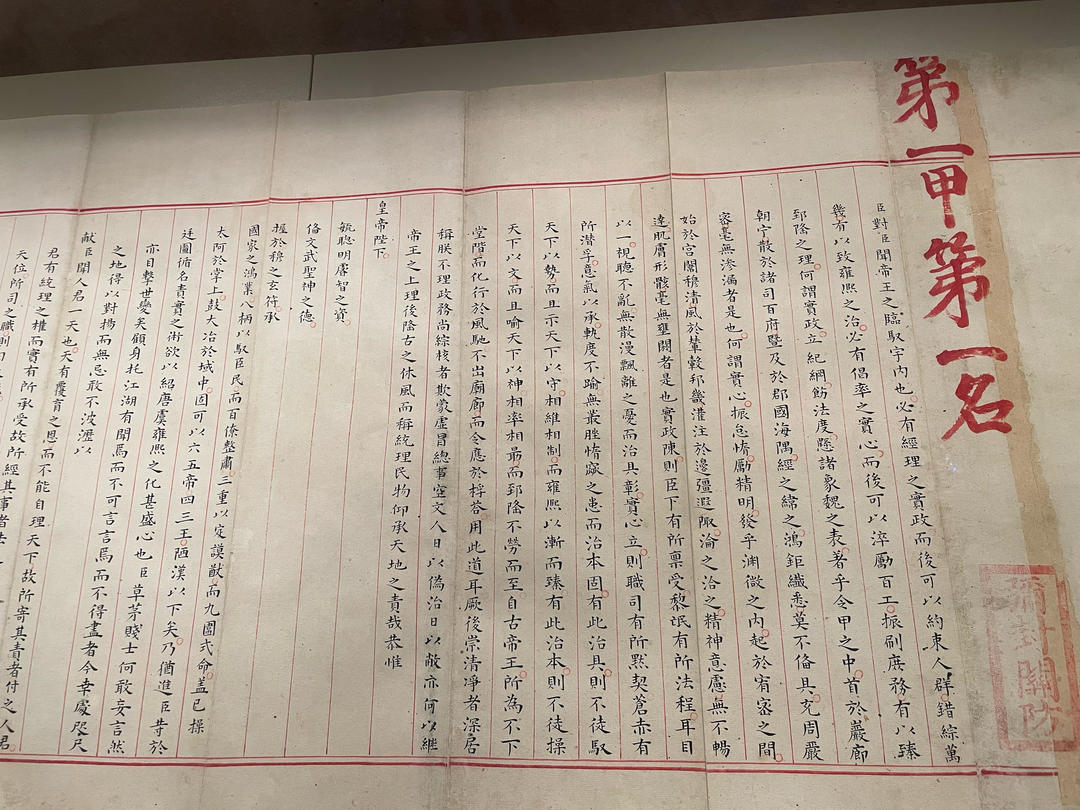 第一甲第一名
彌封關防
臣對臣聞帝王之臨馭宇內也必有經理之實政而後可以約束人群錯綜萬
幾有以致雍熙之治必有倡率之實心而後可以淬勵百工振刷庶務有以臻
郅隆之理何謂實政立紀綱飭法度懸諸象魏之表著乎令甲之中首於巖廊
朝宁散於諸司百府暨及於郡國海隅經之緯之鴻鉅纖悉莫不備具充周嚴
密毫無滲漏者是也何謂實心振怠惰勵精明發乎淵微之內起於宥密之間
始於宮闈穆清風於輦轂邦畿灌注於邊疆遐陬淪之洽之精神意慮無不暢
達肌膚形骸毫無壅閼者是也實政陳則臣下有所稟受黎氓有所法程耳目
以一視聽不亂無散漫飄離之憂而治具彰實心立則職司有所默契蒼赤有
所潛孚意氣以承軌度不踰無叢脞惰窳之患而治本固有此治具則不徒馭
天下以勢而且示天下以守相維相制而雍熙以漸而臻有此治本則不徒操
天下以文而且喻天下以神相率相勗而郅隆不勞而至自古帝王所為不下
堂階而化行於風馳不出廟廊而令應於桴荅用此道耳厥後崇清淨者深居
稱朕不理政務尚綜核者欺蒙虛冒總事空文人日以偽治日以敝亦何以繼
帝王之上理後隆古之休風而稱統理民物仰承天地之責哉恭惟
皇帝陛下
毓聰明睿智之資
備文武聖神之德
握於穆之玄符承
國家之鴻業八柄以馭臣民而百僚整肅三重以定謨猷而九圍式命蓋已操
太阿於掌上鼓大冶於域中固可以六五帝四三王陋漢以下矣乃猶進臣等於
廷圖循名責實之術欲以紹唐虞雍熙之化甚盛心也臣草茅賤士何敢妄言然
亦目擊世變矣顧身托江湖有聞焉而不可言言焉而不得盡者今幸處咫尺
之地得以對揚而無忌敢不波瀝以
獻臣聞人君一天也天有覆育之恩而不能自理天下故所寄其責者付之人君
君有統理之權而實有所承受故所經其事者法
天位所司之職